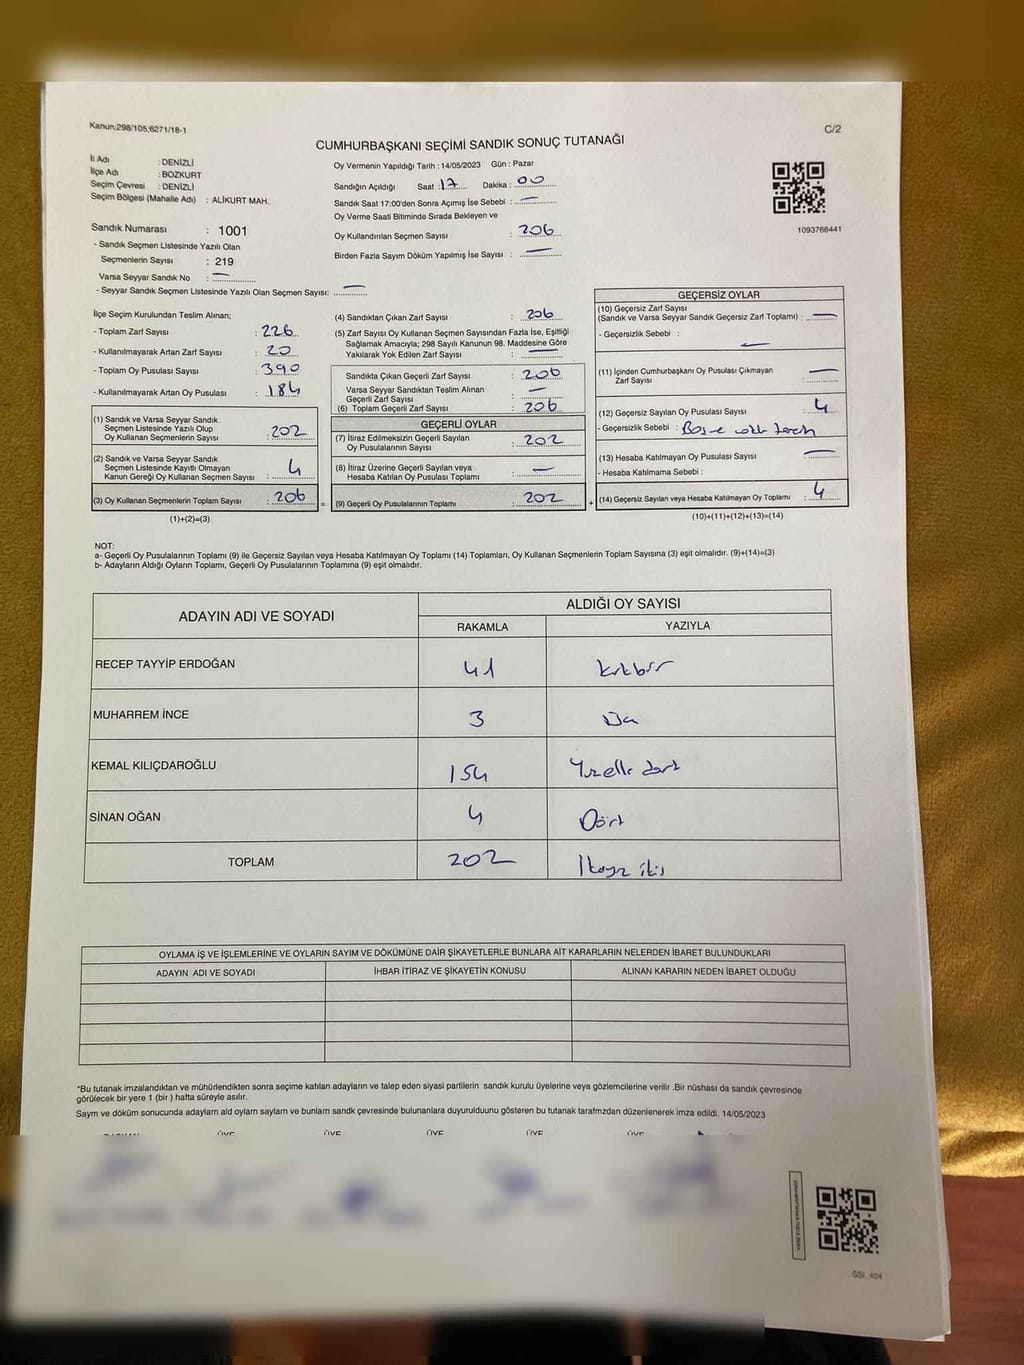 Kanun:298/105;6271/18-1
C/2
CUMHURBAŞKANI SEÇİMİ SANDIK SONUÇ TUTANAĞI
İl Adı : DENİZLİ
İlçe Adı : BOZKURT
Seçim Çevresi : DENİZLİ
Seçim Bölgesi (Mahalle Adı) : ALİKURT MAH.
Sandık Numarası : 1001
- Sandık Seçmen Listesinde Yazılı Olan
Seçmenlerin Sayısı : 219
Varsa Seyyar Sandık No : —
- Seyyar Sandık Seçmen Listesinde Yazılı Olan Seçmen Sayısı: —
Oy Vermenin Yapıldığı Tarih : 14/05/2023 Gün : Pazar
Sandığın Açıldığı Saat : 17 Dakika : 00
Sandık Saat 17:00'den Sonra Açımış İse Sebebi : —
Oy Verme Saati Bitiminde Sırada Bekleyen ve
Oy Kullandırılan Seçmen Sayısı : 206
Birden Fazla Sayım Döküm Yapılmış İse Sayısı : —
1093768441
İlçe Seçim Kurulundan Teslim Alınan;
- Toplam Zarf Sayısı : 226
- Kullanılmayarak Artan Zarf Sayısı : 20
- Toplam Oy Pusulası Sayısı : 390
- Kullanılmayarak Artan Oy Pusulası : 184
(1) Sandık ve Varsa Seyyar Sandık
Seçmen Listesinde Yazılı Olup
Oy Kullanan Seçmenlerin Sayısı : 202
(2) Sandık ve Varsa Seyyar Sandık
Seçmen Listesinde Kayıtlı Olmayan
Kanun Gereği Oy Kullanan Seçmen Sayısı : 4
(3) Oy Kullanan Seçmenlerin Toplam Sayısı : 206
(1)+(2)=(3)
(4) Sandıktan Çıkan Zarf Sayısı : 206
(5) Zarf Sayısı Oy Kullanan Seçmen Sayısından Fazla İse, Eşitliği
Sağlamak Amacıyla; 298 Sayılı Kanunun 98. Maddesine Göre
Yakılarak Yok Edilen Zarf Sayısı : —
Sandıkta Çıkan Geçerli Zarf Sayısı : 206
Varsa Seyyar Sandıktan Teslim Alınan
Geçerli Zarf Sayısı : —
(6) Toplam Geçerli Zarf Sayısı : 206
GEÇERLİ OYLAR
(7) İtiraz Edilmeksizin Geçerli Sayılan
Oy Pusulalarının Sayısı : 202
(8) İtiraz Üzerine Geçerli Sayılan veya
Hesaba Katılan Oy Pusulası Toplamı : —
= (9) Geçerli Oy Pusulalarının Toplamı : 202 +
GEÇERSİZ OYLAR
(10) Geçersiz Zarf Sayısı
(Sandık ve Varsa Seyyar Sandık Geçersiz Zarf Toplamı) : —
- Geçersizlik Sebebi : —
(11) İçinden Cumhurbaşkanı Oy Pusulası Çıkmayan
Zarf Sayısı : —
(12) Geçersiz Sayılan Oy Pusulası Sayısı : 4
- Geçersizlik Sebebi :
(13) Hesaba Katılmayan Oy Pusulası Sayısı : —
- Hesaba Katılmama Sebebi :
(14) Geçersiz Sayılan veya Hesaba Katılmayan Oy Toplamı : 4
(10)+(11)+(12)+(13)=(14)
NOT:
a- Geçerli Oy Pusulalarının Toplamı (9) ile Geçersiz Sayılan veya Hesaba Katılmayan Oy Toplamı (14) Toplamları, Oy Kullanan Seçmenlerin Toplam Sayısına (3) eşit olmalıdır. (9)+(14)=(3)
b- Adayların Aldığı Oyların Toplamı, Geçerli Oy Pusulalarının Toplamına (9) eşit olmalıdır.
ADAYIN ADI VE SOYADI
ALDIĞI OY SAYISI
RAKAMLA YAZIYLA
RECEP TAYYİP ERDOĞAN 41 kırkbir
MUHARREM İNCE 3
KEMAL KILIÇDAROĞLU 154 Yüzelli dört
SİNAN OĞAN 4 Dört
TOPLAM 202 İkiyüz iki
OYLAMA İŞ VE İŞLEMLERİNE VE OYLARIN SAYIM VE DÖKÜMÜNE DAİR ŞİKAYETLERLE BUNLARA AİT KARARLARIN NELERDEN İBARET BULUNDUKLARI
ADAYIN ADI VE SOYADI
İHBAR İTİRAZ VE ŞİKAYETİN KONUSU
ALINAN KARARIN NEDEN İBARET OLDUĞU
*Bu tutanak imzalandıktan ve mühürlendikten sonra seçime katılan adayların ve talep eden siyasi partilerin sandık kurulu üyelerine veya gözlemcilerine verilir .Bir nüshası da sandık çevresinde
görülecek bir yere 1 (bir ) hafta süreyle asılır.
Sayım ve döküm sonucunda adayların aldı oyların sayların ve bunların sandk çevresinde bulunanlara duyurulduunu gösteren bu tutanak tarafmzdan düzenlenerek imza edildi. 14/05/2023
ÜYE ÜYE ÜYE ÜYE ÜYE
SSI_404